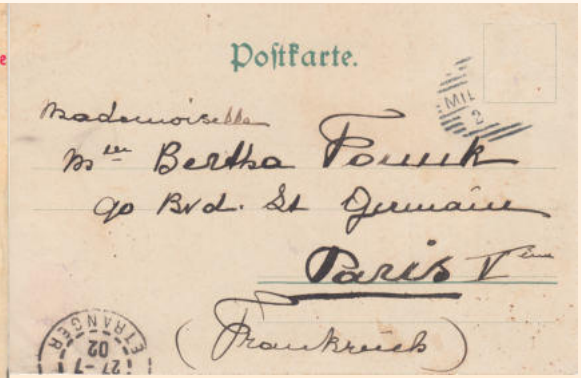 Postkarte.
MIL
2
Mademoiselle
Mlle Bertha
90 Bvd. St Germain
Paris Vème
(Frankreich)
ETRANGER
27-7
02